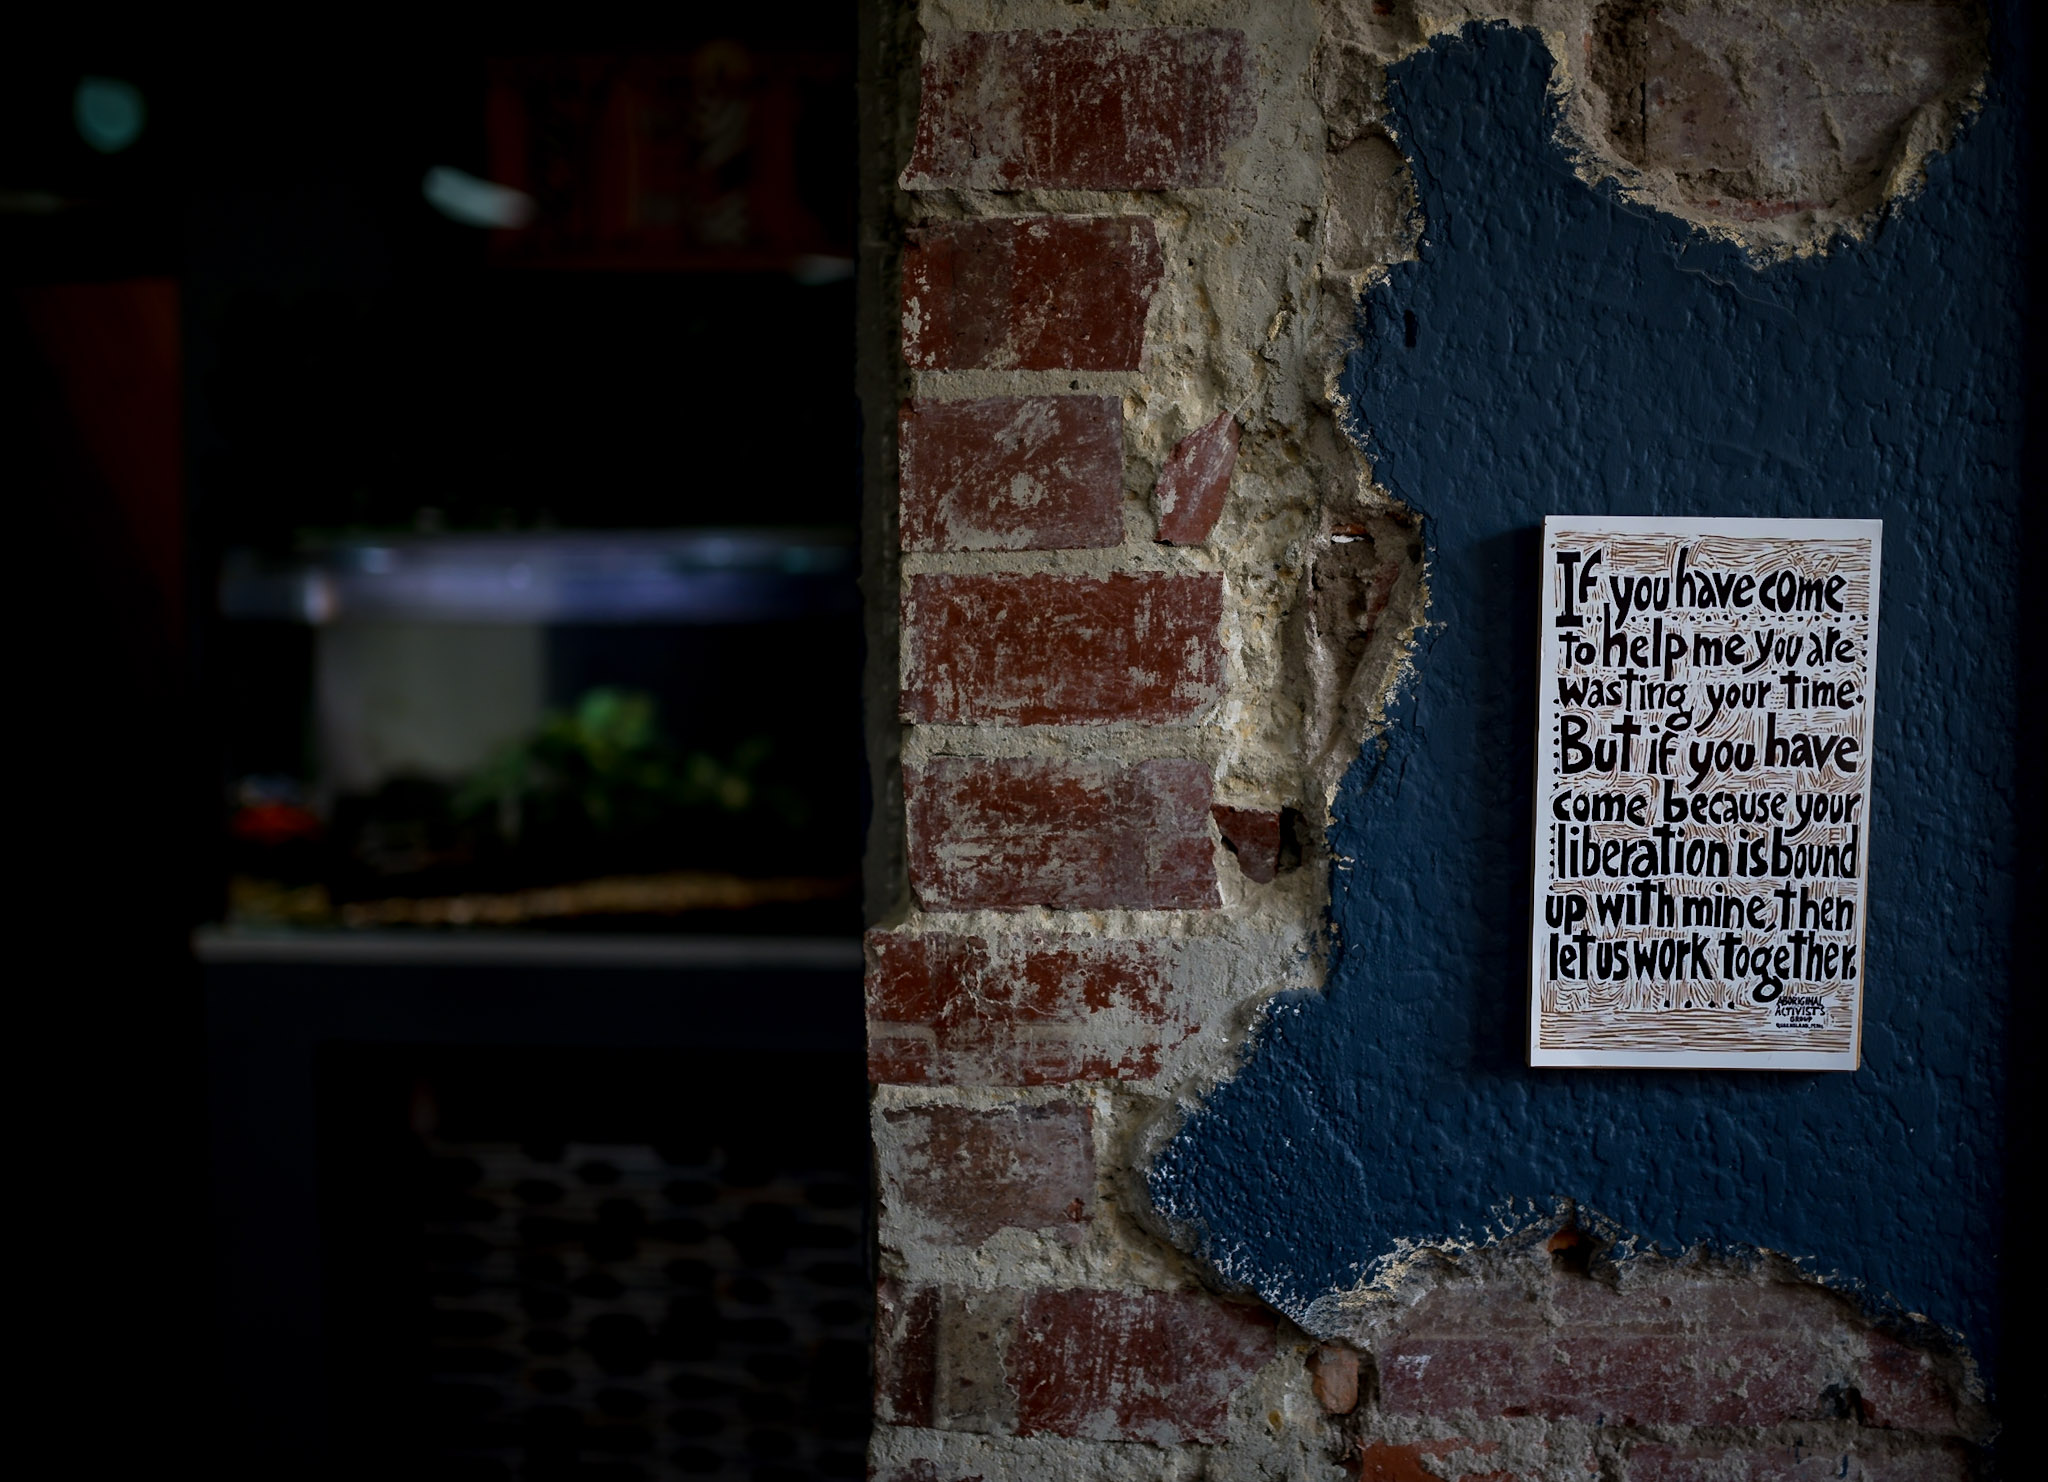 If you have come
to help me you are
wasting your time.
But if you have
come because your
liberation is bound
up with mine, then
let us work together.
ABORIGINAL
ACTIVIST'S
GROUP
QUEENSLAND, 1970s